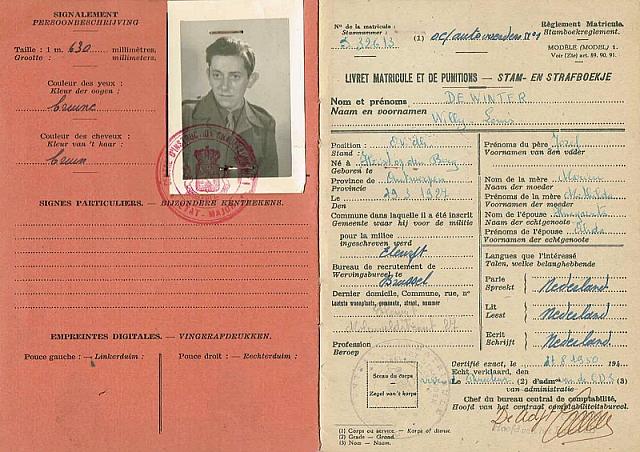 SIGNALEMENT
PERSOONBESCHRIJVING
Taille : 1 m. 630 millimètres.
Grootte : millimeters.
Couleur des yeux :
Kleur der oogen :
bruine
Couleur des cheveux :
Kleur van 't haar :
bruin
SIGNES PARTICULIERS. — BIJZONDERE KENTEEKENS.
EMPREINTES DIGITALES. — VINGERAFDRUKKEN.
Pouce gauche : — Linkerduim :
Pouce droit : — Rechterduim :
N° de la matricule :
Stamnummer :
(1)
Règlement Matricule.
Stamboekreglement.
MODÈLE (MODEL) 1.
Voir (Zie) art. 89, 90, 91.
LIVRET MATRICULE ET DE PUNITIONS — STAM- EN STRAFBOEKJE
Nom et prénoms DE WINTER
Naam en voornamen Willy Louis
Position :
Stand :
Né à Heist op den Berg
Geboren te
Province de Antwerpen
Provincie
Le
Den
Commune dans laquelle il a été inscrit
Gemeente waar hij voor de militie
pour la milice
ingeschreven werd
Bureau de recrutement de
Wervingsbureel van
Brussel
Dernier domicile, Commune, rue, n°
Laatste woonplaats, gemeente, straat, nummer
Profession
Beroep
Sceau du corps
Zegel van 't korps
(1) Corps ou service. — Korps of dienst.
(2) Grade — Graad.
(3) Nom — Naam.
Prénoms du père Jozef
Voornamen van den vader
Nom de la mère
Naam der moeder
Prénoms de la mère Mathilde
Voornamen der moeder
Nom de l'épouse
Naam der echtgenoote
Prénoms de l'épouse
Voornamen der echtgenoote
Langues que l'intéressé
Talen, welke belanghebbende
Parle
Spreekt
Nederland.
Lit
Leest
Nederland.
Ecrit
Schrijft
Nederland.
Certifié exact, le 21.8.1950 194
Echt verklaard, den
Le (2) d'adm (3)
van administratie
Chef du bureau central de comptabilité,
Hoofd van het centraal comptabiliteitsbureel.